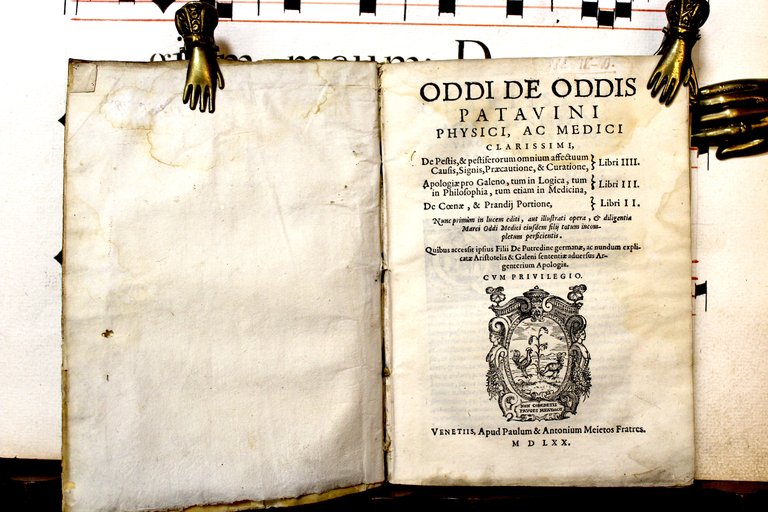 meum: D
ODDI DE ODDIS
PATAVINI
PHYSICI, AC MEDICI
CLARISSIMI,
De Pestis, & pestiferorum omnium affectuum
Causis, Signis, Præcautione, & Curatione, } Libri IIII.
Apologiæ pro Galeno, tum in Logica, tum
in Philosophia, tum etiam in Medicina, } Libri III.
De Cœnæ, & Prandij Portione, } Libri II.
Nunc primùm in lucem editi, aut illustrati opera, & diligentia
Marci Oddi Medici eiusdem filij totum incom-
pletum perficientis.
Quibus accessit ipsius Filii De Putredine germanæ, ac nundum expli-
catæ Aristotelis & Galeni sententiæ aduersus Ar-
genterium Apologia.
CVM PRIVILEGIO.
NON COMEDETIS
FRVGES MENDACII
VENETIIS, Apud Paulum & Antonium Meietos Fratres.
M D LXX.